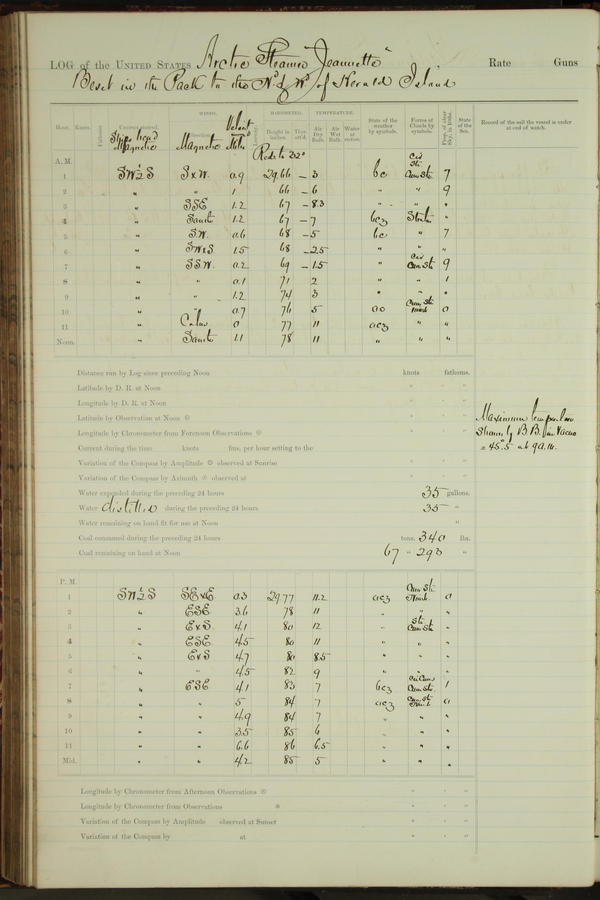 LOG of the UNITED STATES Arctic Steamer "Jeannette" Rate Guns
Beset in the Pack to the Nd & Wd of Herald Island
Hour. Knots. Fathoms. Ship's head Magnetic WINDS. Direction Magnetic Veloct Mls BAROMETER. Height in inches. Ther. att'd. TEMPERATURE. Air Dry Bulb. Air Wet Bulb. Water at surface. State of the weather by symbols. Forms of Clouds by symbols. Prop. of clear Sky, in 10ths. State of the Sea. Record of the sail the vessel is under at end of watch.
A. M. Reds to 32°
1 SW½S SxW. 0.9 29.66 – 3 bc Cir St Cum St 7
2 " " 1 66 – 6 " " 9
3 " SSE 1.2 67 – 8.3 " " "
4 " South 1.2 67 – 7 bcz Stratus "
5 " S.W. 0.6 68 – 5 bc " 7
6 " SWxS 1.5 68 – 2.5 " " "
7 " SSW. 0.2 69 – 1.5 " Cir Cum St 9
8 " " 0.1 71 2 " " 1
9 " " 1.2 74 3 " " "
10 " " 0.7 76 5 oo Cum St 0
11 " Calm 0 77 11 ocz " "
Noon. " South 1.1 78 11 " " "
Distance run by Log since preceding Noon knots fathoms.
Latitude by D. R. at Noon
Longitude by D. R. at Noon
Latitude by Observation at Noon
Longitude by Chronometer from Forenoon Observations
Current during the time knots fms. per hour setting to the
Variation of the Compass by Amplitude observed at Sunrise
Variation of the Compass by Azimuth observed at
Maximum temperature
Shown by B. B. in Vacuo
= 45°.5 at 9 A.M.
Water expended during the preceding 24 hours 35 gallons.
Water distilled during the preceding 24 hours 35 "
Water remaining on hand fit for use at Noon "
Coal consumed during the preceding 24 hours tons. 340 lbs.
Coal remaining on hand at Noon 67 " 293 "
P. M.
1 SW½S SExE 0.3 29.77 11.2 ocz Cum St 0
2 " ESE 3.6 78 11 " " "
3 " ExS. 4.1 80 12 " St Cum St "
4 " ESE 4.5 80 11 " " "
5 " ExS 4.7 80 8.5 " " "
6 " " 4.5 82 9 " " "
7 " ESE 4.1 83 7 bcz Cir Cum Cum St 1
8 " " 5 84 7 ocz Cum St 0
9 " " 4.9 84 7 " " "
10 " " 3.5 85 6 " " "
11 " " 6.6 86 6.5 " " "
Mid. " " 4.2 85 5 " " "
Longitude by Chronometer from Afternoon Observations
Longitude by Chronometer from Observations
Variation of the Compass by Amplitude observed at Sunset
Variation of the Compass by at